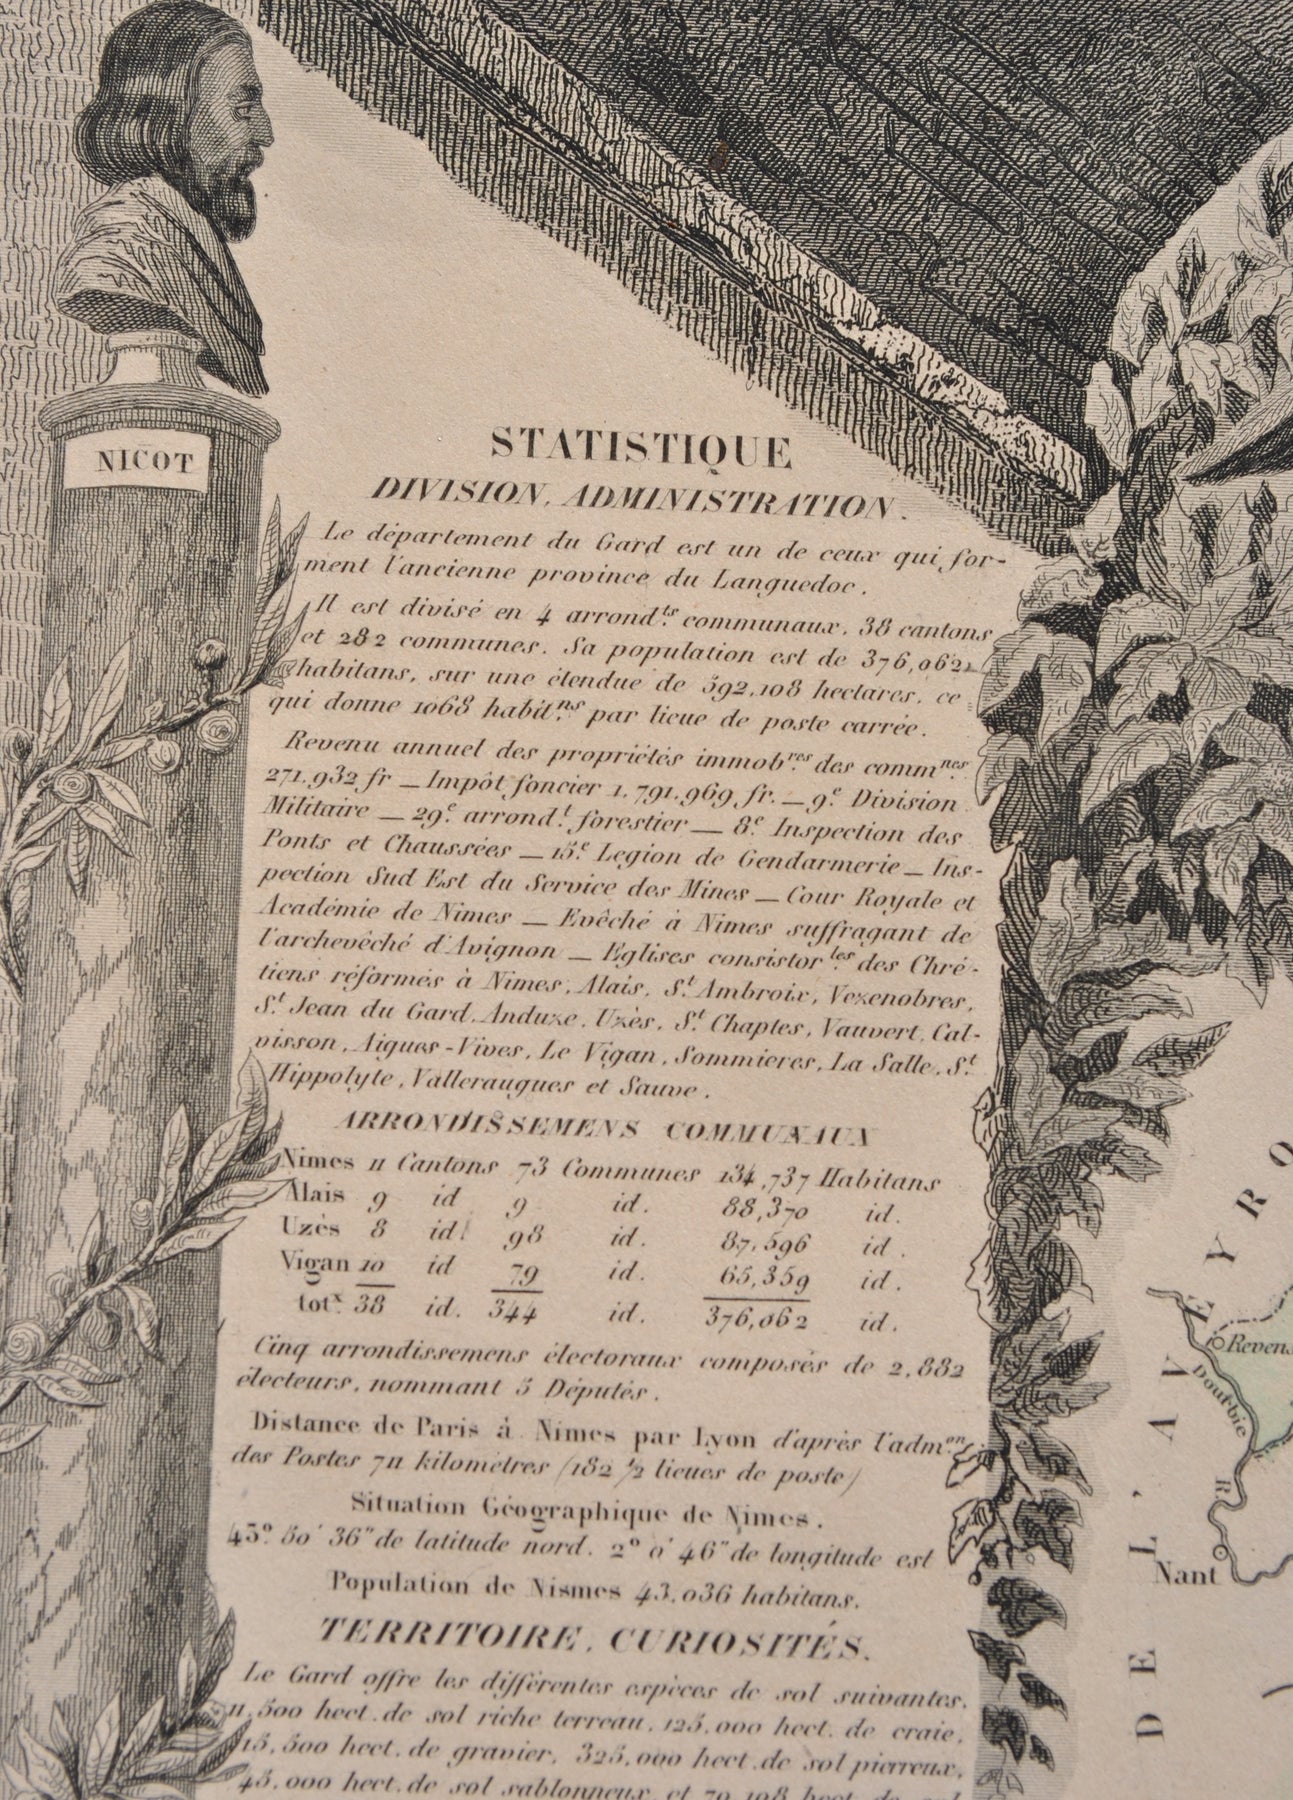 NICOT
STATISTIQUE
DIVISION, ADMINISTRATION.
Le département du Gard est un de ceux qui for-
ment l'ancienne province du Languedoc.
Il est divisé en 4 arrond.ts communaux, 38 cantons
et 282 communes. Sa population est de 376,062
habitans, sur une étendue de 592,108 hectares, ce
qui donne 1068 habit.ns par lieue de poste carrée.
Revenu annuel des propriétés immob.res des comm.nes
271,932 fr — Impôt foncier 1,791,969 fr. — 9.e Division
Militaire — 29.e arrond.t forestier — 8.e Inspection des
Ponts et Chaussées — 15.e Legion de Gendarmerie — Ins-
pection Sud Est du Service des Mines — Cour Royale et
Académie de Nimes — Evêché à Nimes suffragant de
l'archevêché d'Avignon — Eglises consistor.les des Chré-
tiens réformés à Nimes, Alais, S.t Ambroix, Vezenobres,
S.t Jean du Gard, Anduze, Uzès, S.t Chaptes, Vauvert, Cal-
visson, Aigues-Vives, Le Vigan, Sommieres, La Salle, S.t
Hippolyte, Valleraugues et Sauve.
ARRONDISSEMENS COMMUNAUX
Nimes 11 Cantons 73 Communes 134,737 Habitans
Alais 9 id 9 id. 88,370 id.
Uzès 8 id 98 id. 87,596 id.
Vigan 10 id 79 id. 65,359 id.
tot.x 38 id. 344 id. 376,062 id.
Cinq arrondissemens électoraux composés de 2,882
électeurs, nommant 5 Députés.
Distance de Paris à Nimes par Lyon d'après l'adm.on
des Postes 711 kilomètres (182 1/2 lieues de poste)
Situation Géographique de Nimes.
43° 50' 36" de latitude nord. 2° 0' 46" de longitude est
Population de Nismes 43,036 habitans.
TERRITOIRE, CURIOSITÉS.
Le Gard offre les différentes espèces de sol suivantes.
11,500 hect. de sol riche terreau, 125,000 hect. de craie,
15,500 hect. de gravier, 325,000 hect. de sol pierreux,
45,000 hect. de sol sablonneux et 70,108 hect. de sol
DE L'AVEYRO
Revens
Dourbie
R.
Nant